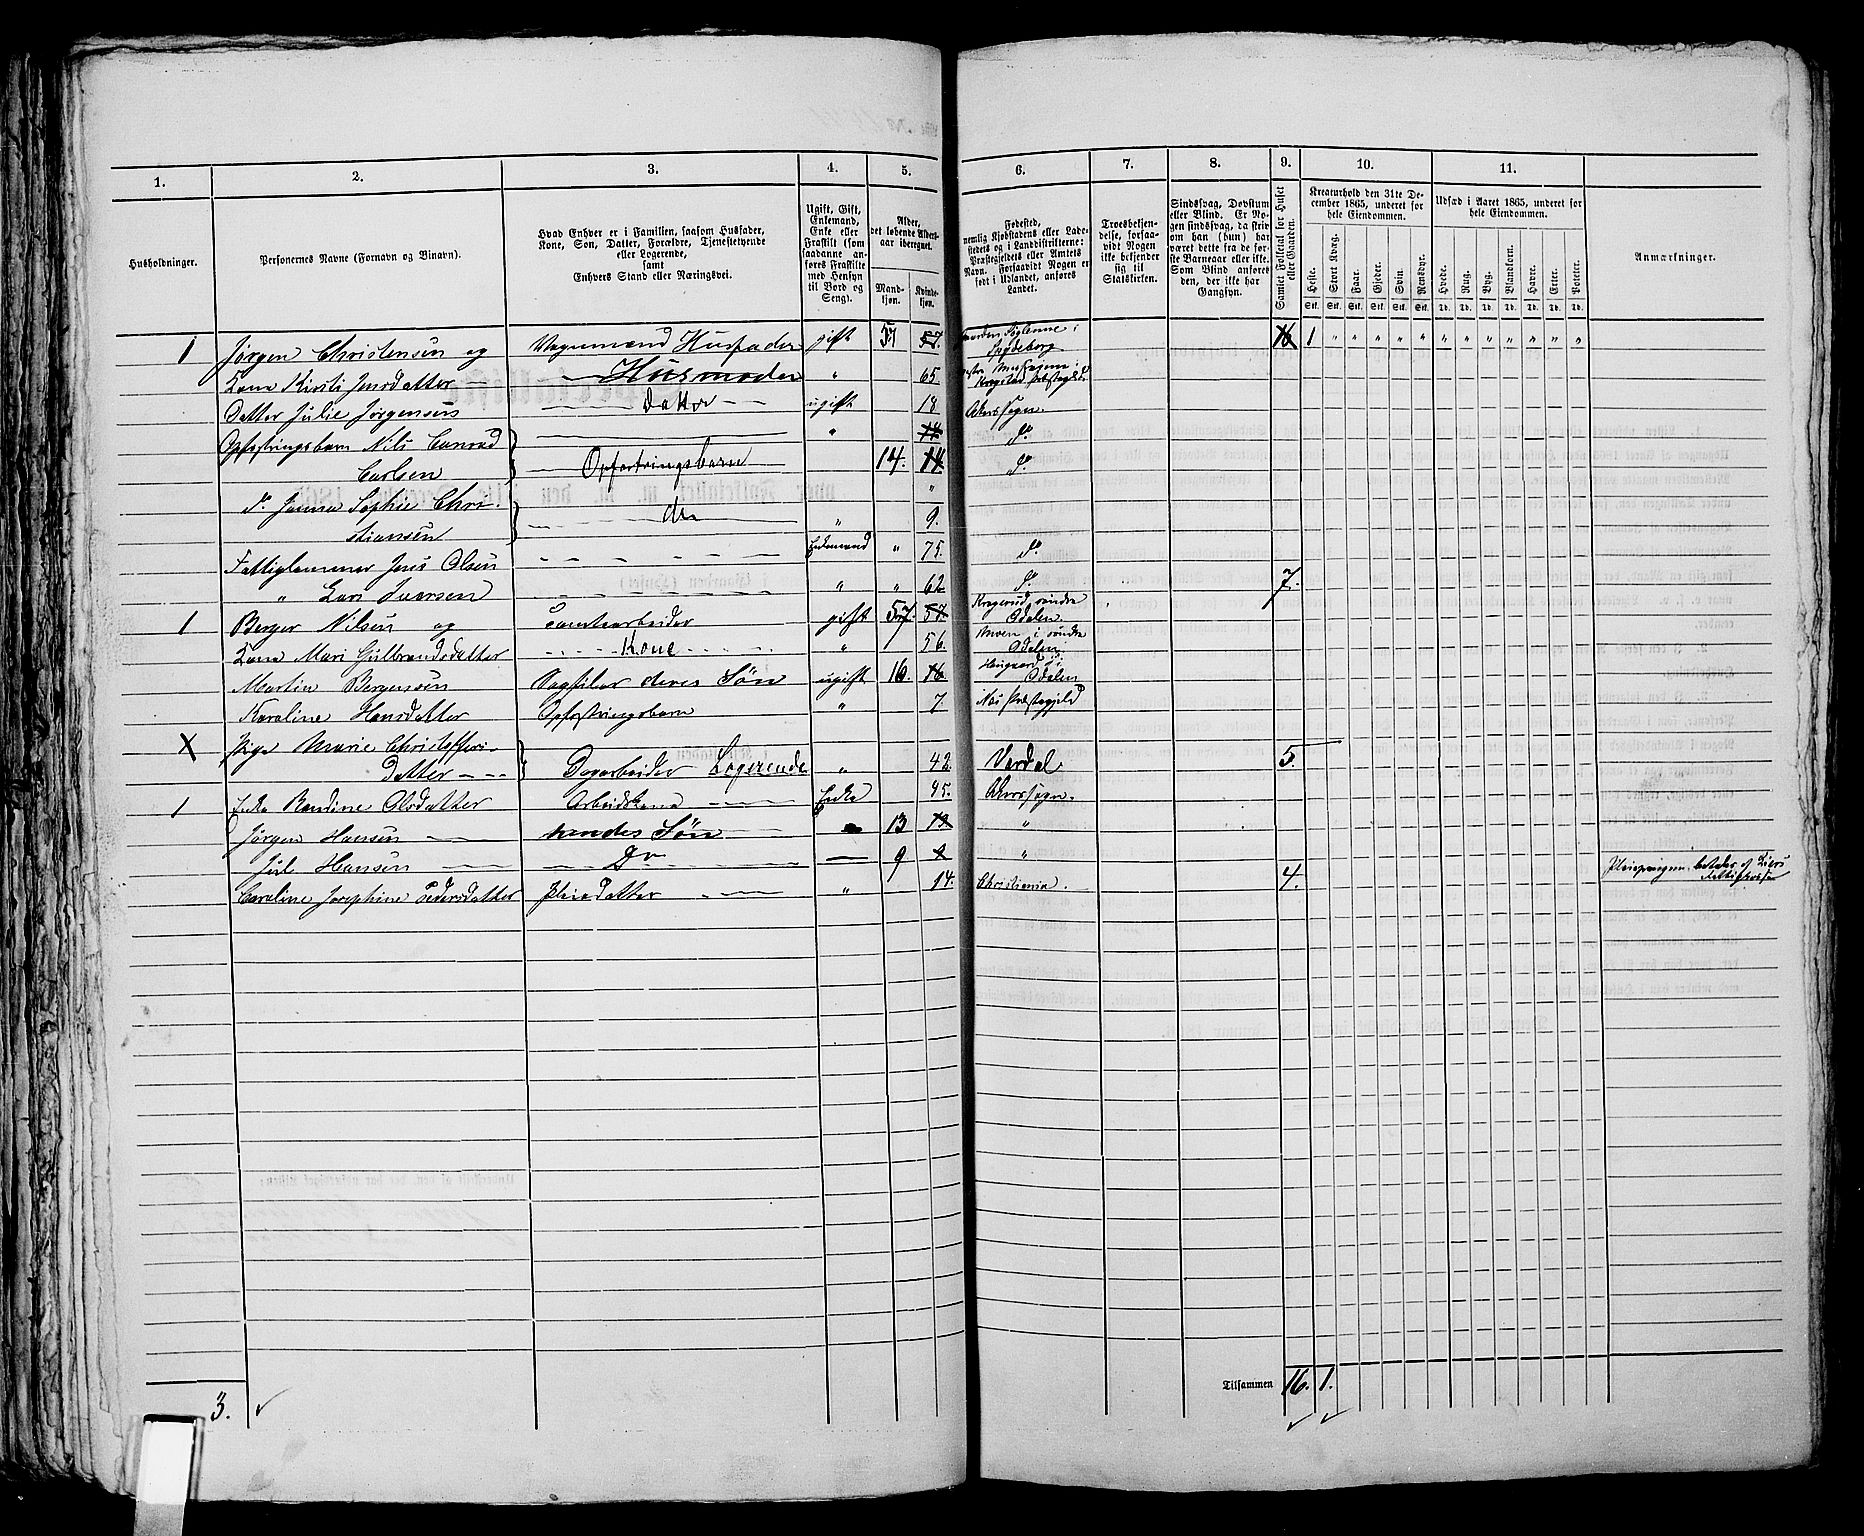 1. 2. 3. 4. 5. 6. 7. 8. 9. 10. 11.
Husholdninger.
Personernes Navne (Fornavn og Binavn).
Hvad Enhver er i Familien, saasom Husfader,
Kone, Søn, Datter, Forældre, Tjenestetyende
eller Logerende,
samt
Enhvers Stand eller Næringsvei.
Ugift, Gift,
Enkemand,
Enke eller
Fraskilt (som
saadanne an-
føres Fraskilte
med Hensyn
til Bord og
Seng).
Alder,
det løbende Alders-
aar iberegnet.
Mand-
kjøn.
Kvinde-
kjøn.
Fødested,
nemlig Kjøbstadens eller Lade-
stedets og i Landdistrikterne:
Præstegjeldets eller Amtets
Navn. Forsaavidt Nogen er
født i Udlandet, anføres
Landet.
Troesbekjen-
delse, forsaa-
vidt Nogen
ikke bekjender
sig til
Statskirken.
Sindssvag, Døvstum
eller Blind. Er No-
gen sindssvag, da skriv
om han (hun) har
været dette fra de før-
ste Barneaar eller ikke.
Som Blind anføres
den, der ikke har
Gangsyn.
Samlet Folketal for Huset
eller Gaarden.
Kreaturhold den 31te De-
cember 1865, underet for
hele Eiendommen.
Heste. Stort Kvæg. Faar. Gjeder. Svin. Rensdyr.
Stk. Stk. Stk. Stk. Stk. Stk.
Udsæd i Aaret 1865, underet for
hele Eiendommen.
Hvede. Rug. Byg. Blandkorn. Havre. Erter. Poteter.
Td. Td. Td. Td. Td. Td. Td.
Anmærkninger.
1 Jørgen Christensen og Vognmand Husfader gift 57 57. i Spydeberg 16 1 " " " " " " " " " " " "
Kona Kirsti Jensdatter — Husmoder " 65
Datter Julie Jørgensen Datter ugift 18 Akers Sogn.
Opfostringsbarn Nils Conrad " 14 do
Carlsen Opfostringsbarn 14. 14 do
do Sophie Chri- "
stiansen do " 9.
Fattiglemmer Jens Olsen Enkemand " 75. do
" Lars Iversen " " 62 do 7.
1 Berger Nilsen og Tomtearbeider gift 57. 57 søndre Odalen
Kona Mari Gulbrandsdatter Kone " 56. i søndre Odalen
Martin Bergersen Sagfiler deres Søn ugift 16 16 i Odalen
Karoline Hansdatter Opfostringsbarn " 7. Næs Præstegjeld
X Pige Marie Christoffers-
Datter Dagarbeider Logerende " 42. Verdal 5.
1 Enke Randine Olsdatter Arbeidskone Enke 45. Akers Sogn.
Jørgen Hansen hendes Søn — 13 13 "
Jul Hansen Do — 9 9 "
Caroline Josephine Pedersdatter Pleiedatter " 14. Christiania. 4.
Tilsammen 16. 1.
3.